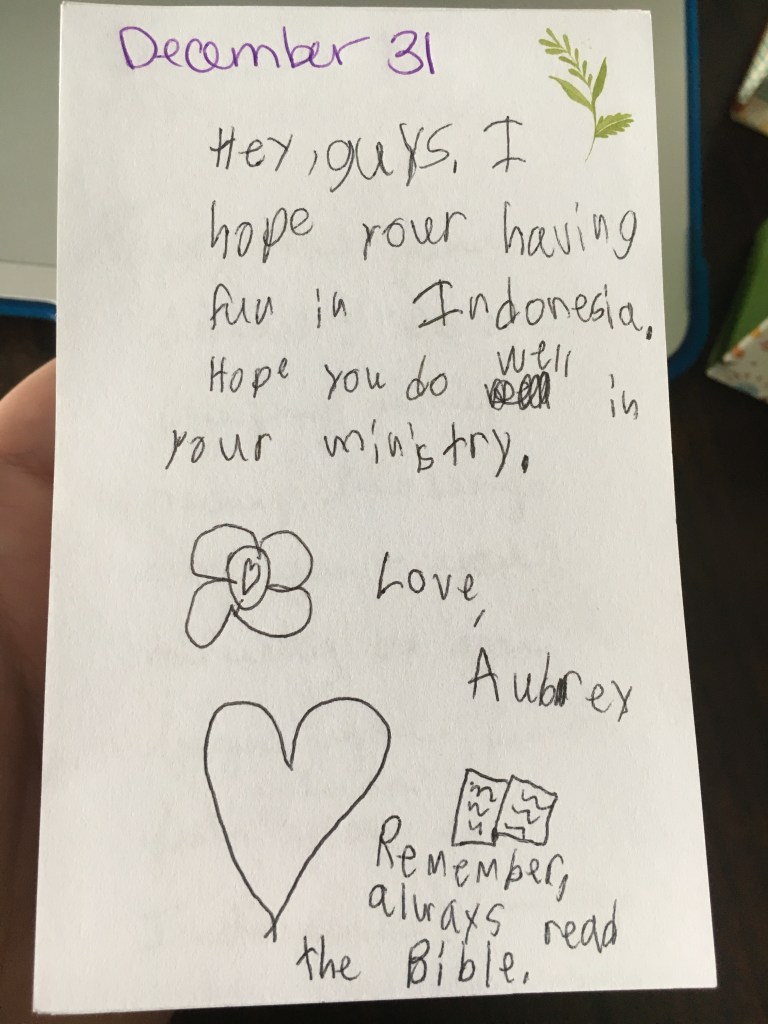 December 31
Hey, guys. I
hope your having
fun in Indonesia.
Hope you do well in
your ministry.
Love,
Aubrey
Remember,
always read
the Bible.